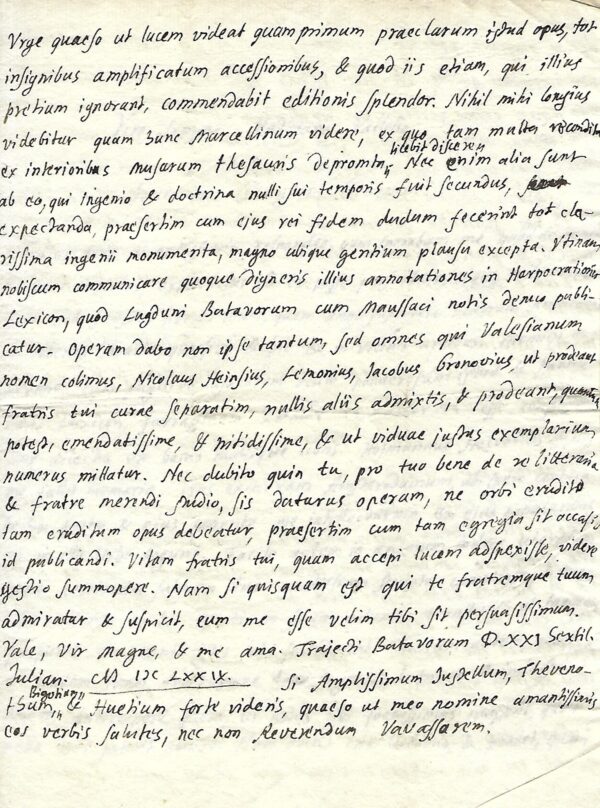 Vrge quaeso ut lucem videat quamprimum praeclarum istud opus, tot
insignibus amplificatum accessionibus, & quod iis etiam, qui illius
pretium ignorant, commendabit editionis splendor. Nihil mihi longius
videbitur quam hunc Marcellinum videre, ex quo tam multa recondita
licebit discere
ex interioribus Musarum thesauris depromta. Nec enim alia sunt
ab eo, qui ingenio & doctrina nulli sui temporis fuit secundus,
expectanda, praesertim cum ejus rei fidem dudum fecerint tot cla-
rissima ingenii monumenta, magno ubique gentium plausu excepta. Vtinam
nobiscum communicare quoque digneris illius annotationes in Harpocrationis
Lexicon, quod Lugduni Batavorum cum Maussaci notis denuo publi-
catur. Operam dabo non ipse tantum, sed omnes qui Valesianum
nomen colimus, Nicolaus Heinsius, Lemonius, Iacobus Gronovius, ut prodeant
fratris tui curae separatim, nullis aliis admixtis, & prodeant, quantum
potest, emendatissime, & nitidissime, & ut viduae justus exemplarium
numerus mittatur. Nec dubito quin tu, pro tuo bene de re litteraria
& fratre merendi studio, sis daturus operam, ne orbi erudito
tam eruditum opus debeatur, praesertim cum tam egregia sit occasio
id publicandi. Vitam fratris tui, quam accepi lucem adspexisse, videre
gestio summopere. Nam si quisquam est qui te fratremque tuum
admiratur & suspicit, eum me esse velim tibi sit persuasissimum.
Vale, Vir Magne, & me ama. Trajecti Batavorum D. XXI Sextil.
Julian. CIƆ IƆC LXXIX. Si Amplissimum Justellum, Theveno-
Bigotium
tium, & Huetium forte videris, quaeso ut meo nomine amantissimis
eos verbis salutes, nec non Reverendum Vavassorem.